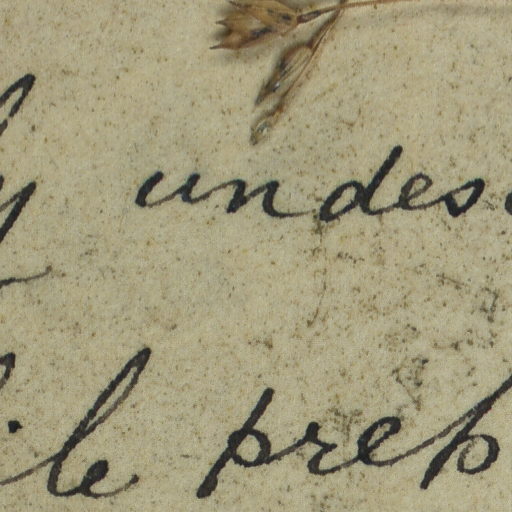 y undes
ile prep